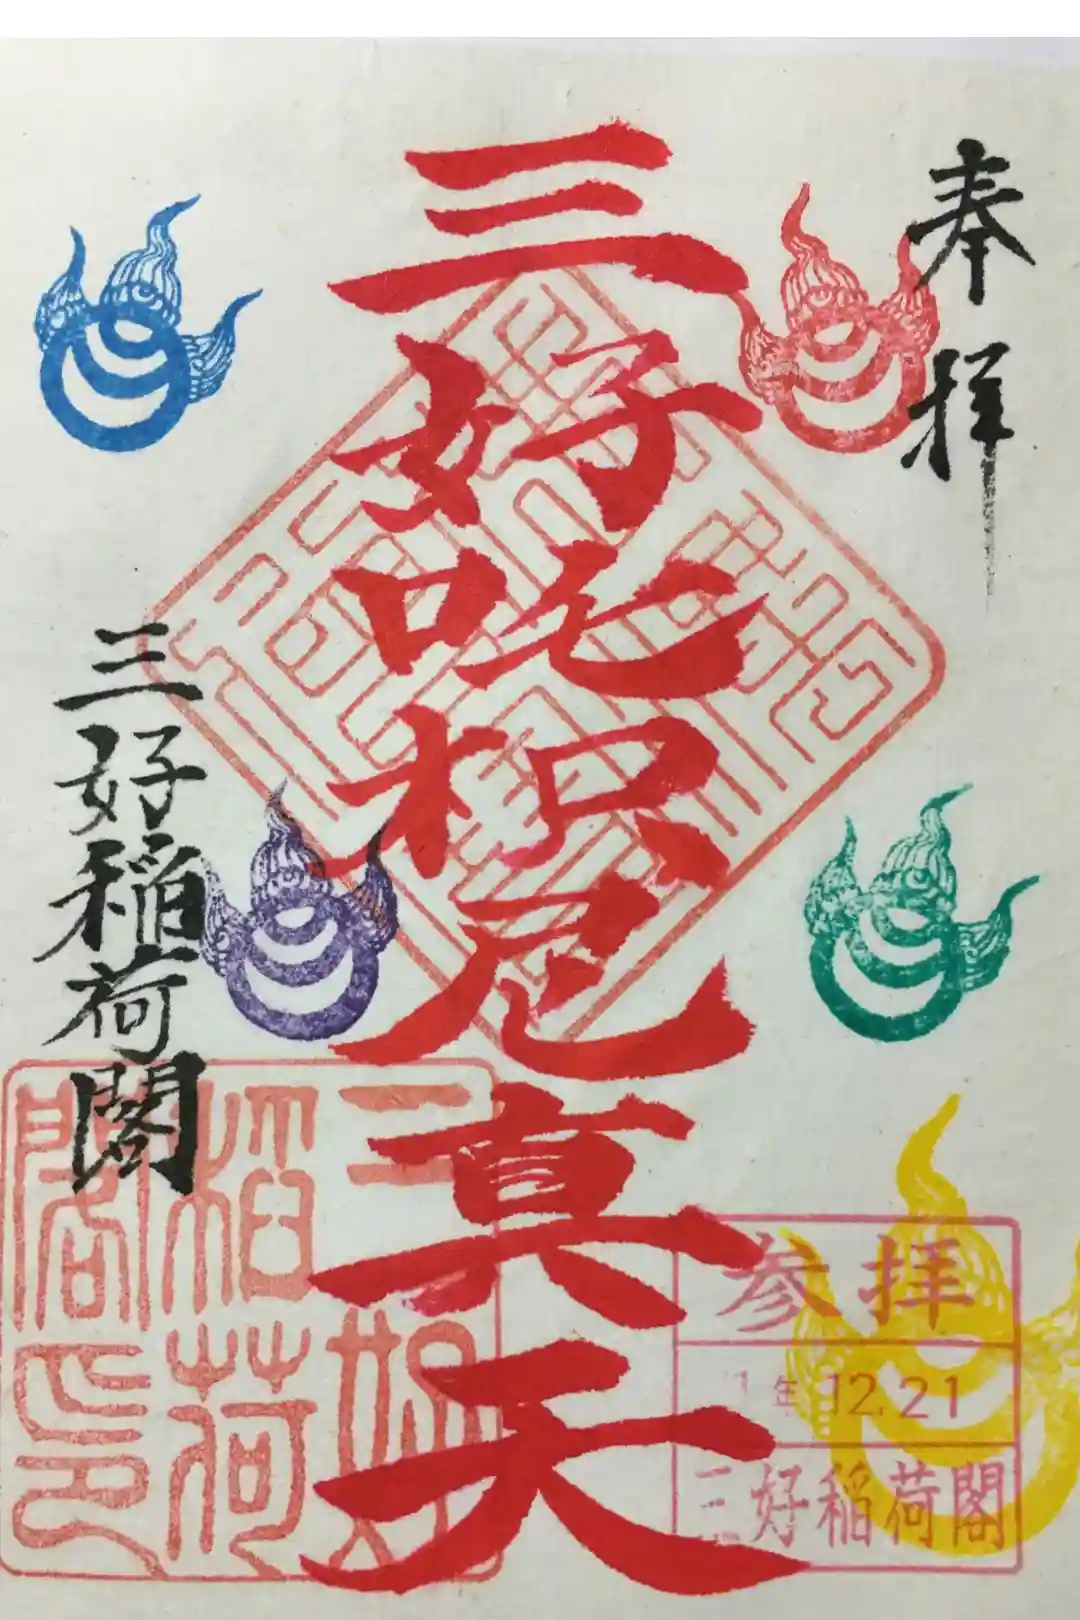 奉拝
三好吒枳尼真天
三好稲荷閣
三好
稲荷
閣印
参拝
1年.12.21
三好稲荷閣